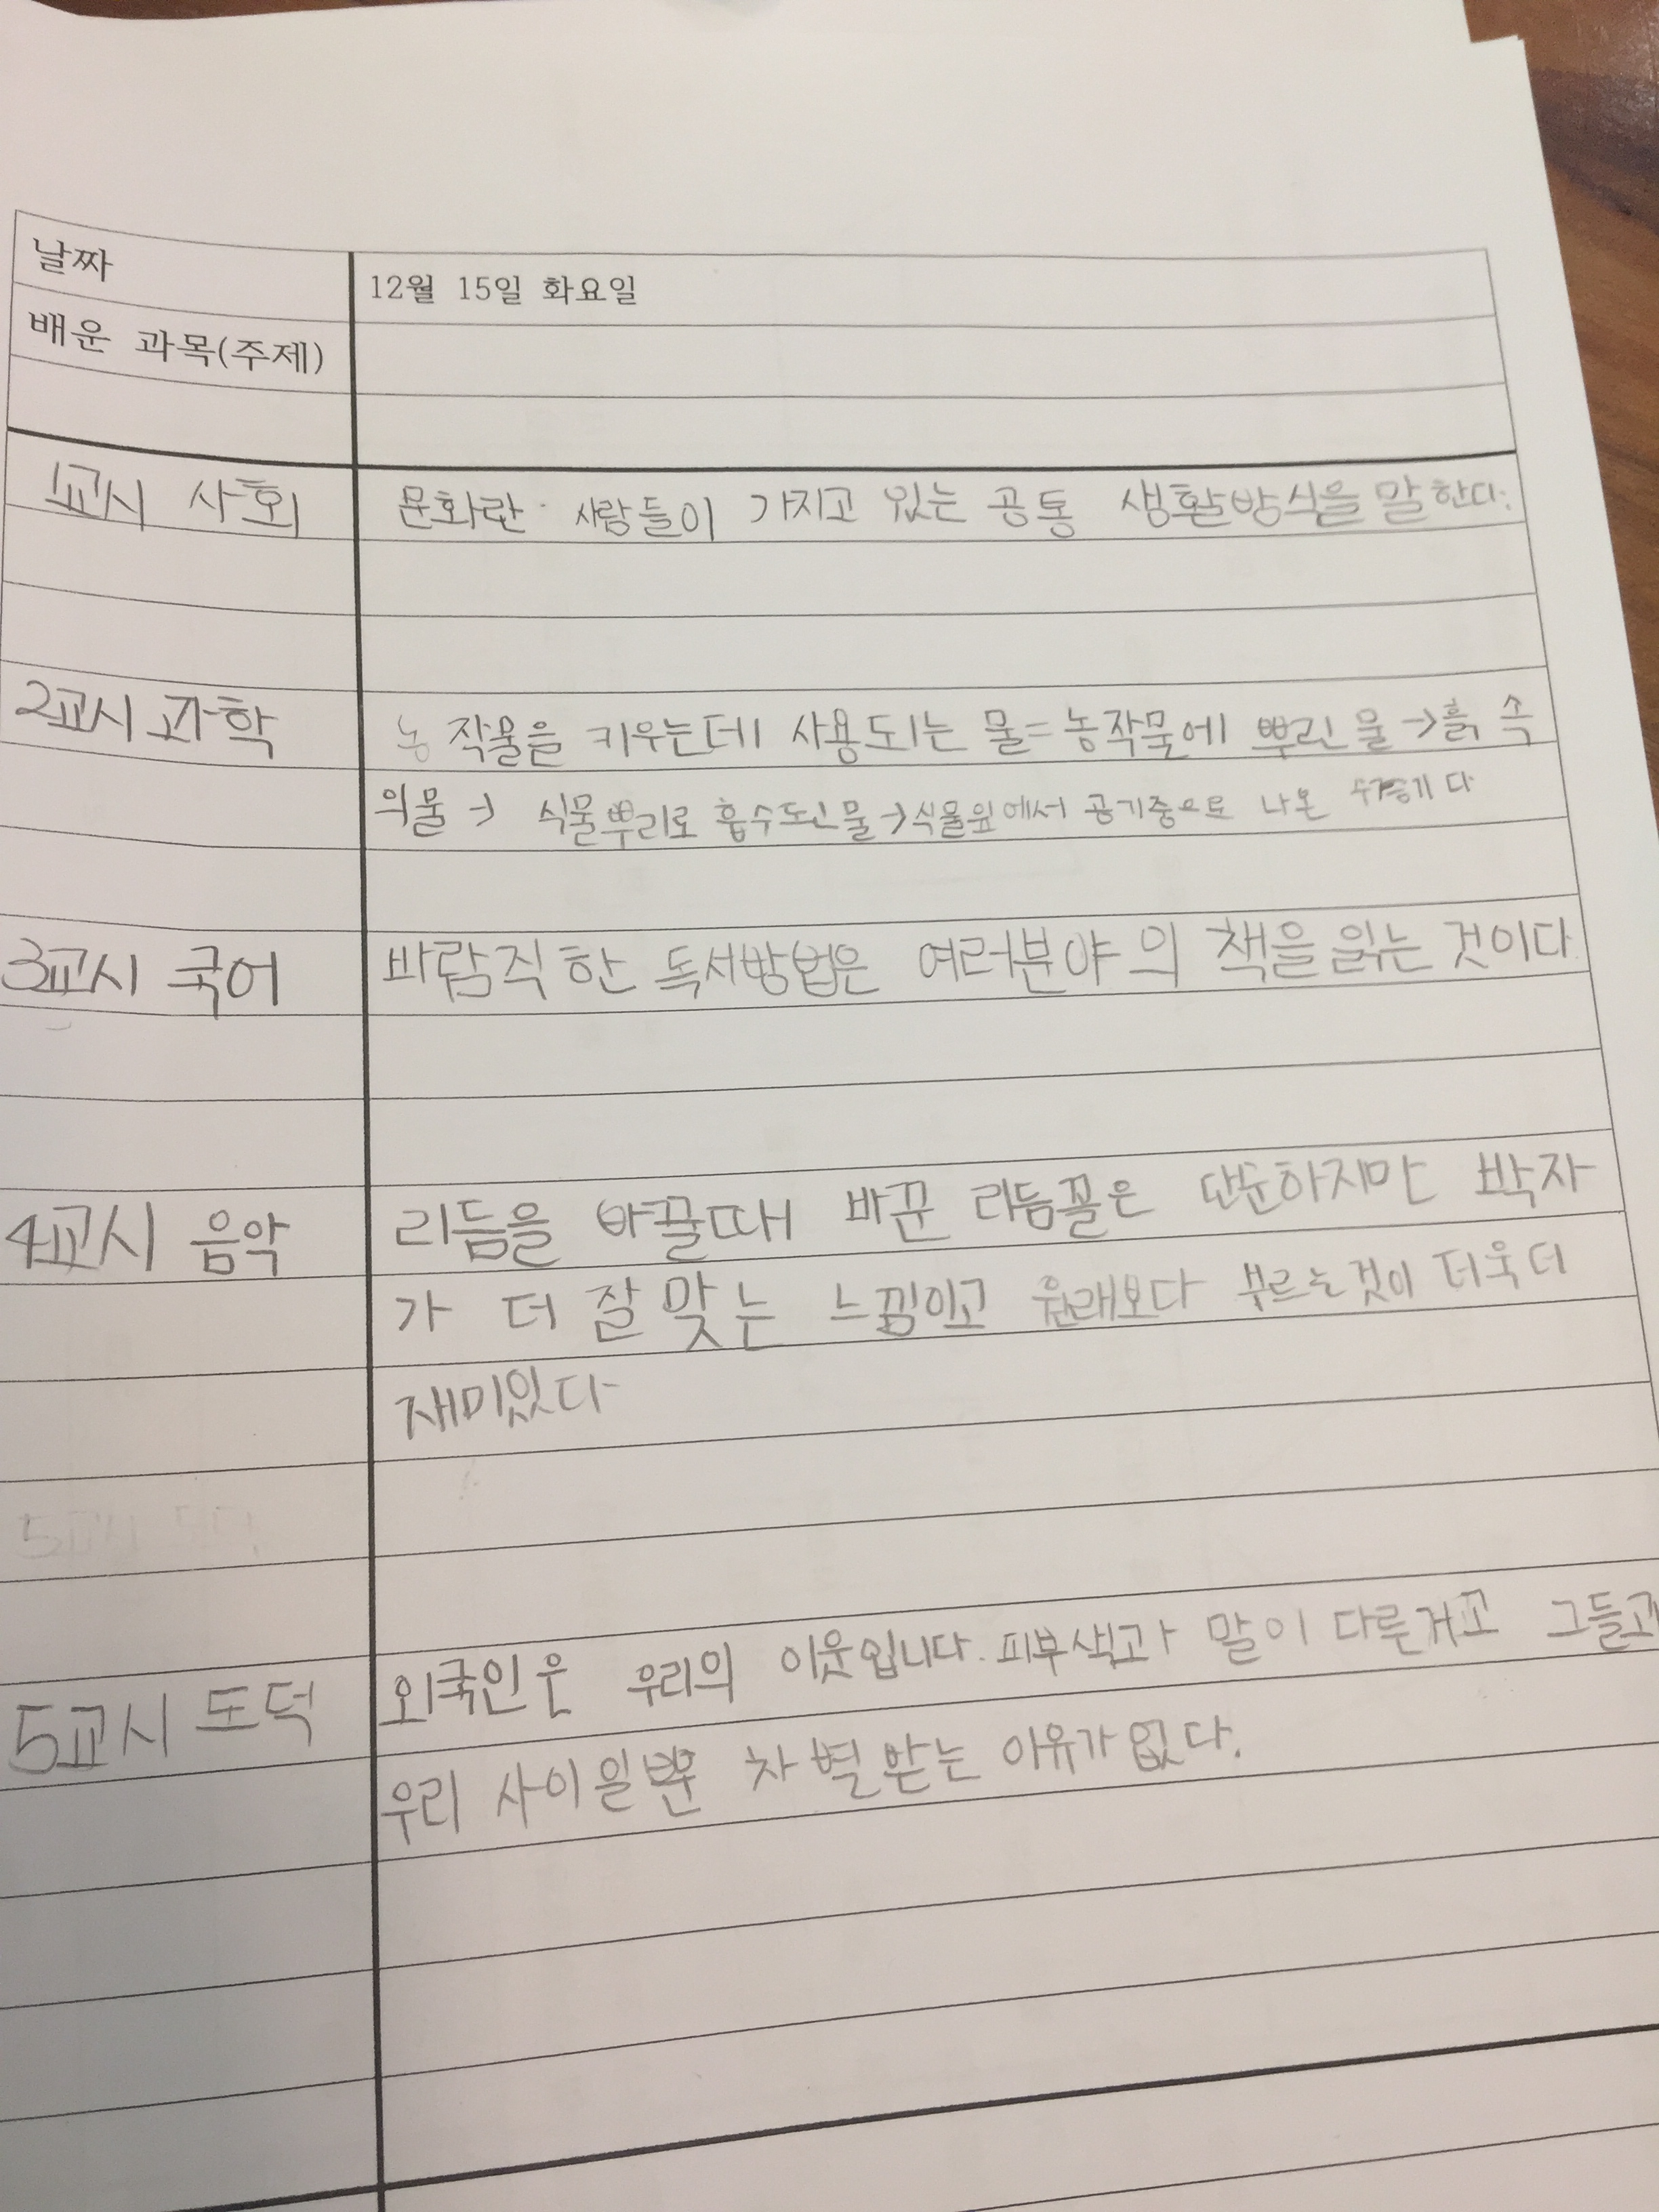 날짜
12월 15일 화요일
배운 과목(주제)
1교시 사회
문화란 사람들이 가지고 있는 공통 생활방식을 말한다.
2교시 과학
농작물을 키우는데 사용되는 물=농작물에 뿌린 물→흙 속
의물→ 식물뿌리로 흡수된물→식물잎에서 공기중으로 나온 수증기다
3교시 국어
바람직한 독서방법은 여러분야의 책을 읽는 것이다
4교시 음악
리듬을 바꿀때 바꾼 리듬꼴은 단순하지만 박자
가 더 잘 맞는 느낌이고 원래보다 부르는것이 더욱더
재미있다
5교시 도덕
외국인은 우리의 이웃입니다. 피부색과 말이 다른거고 그들과
5교시 도덕
우리 사이일뿐 차별받는 이유가 없다.